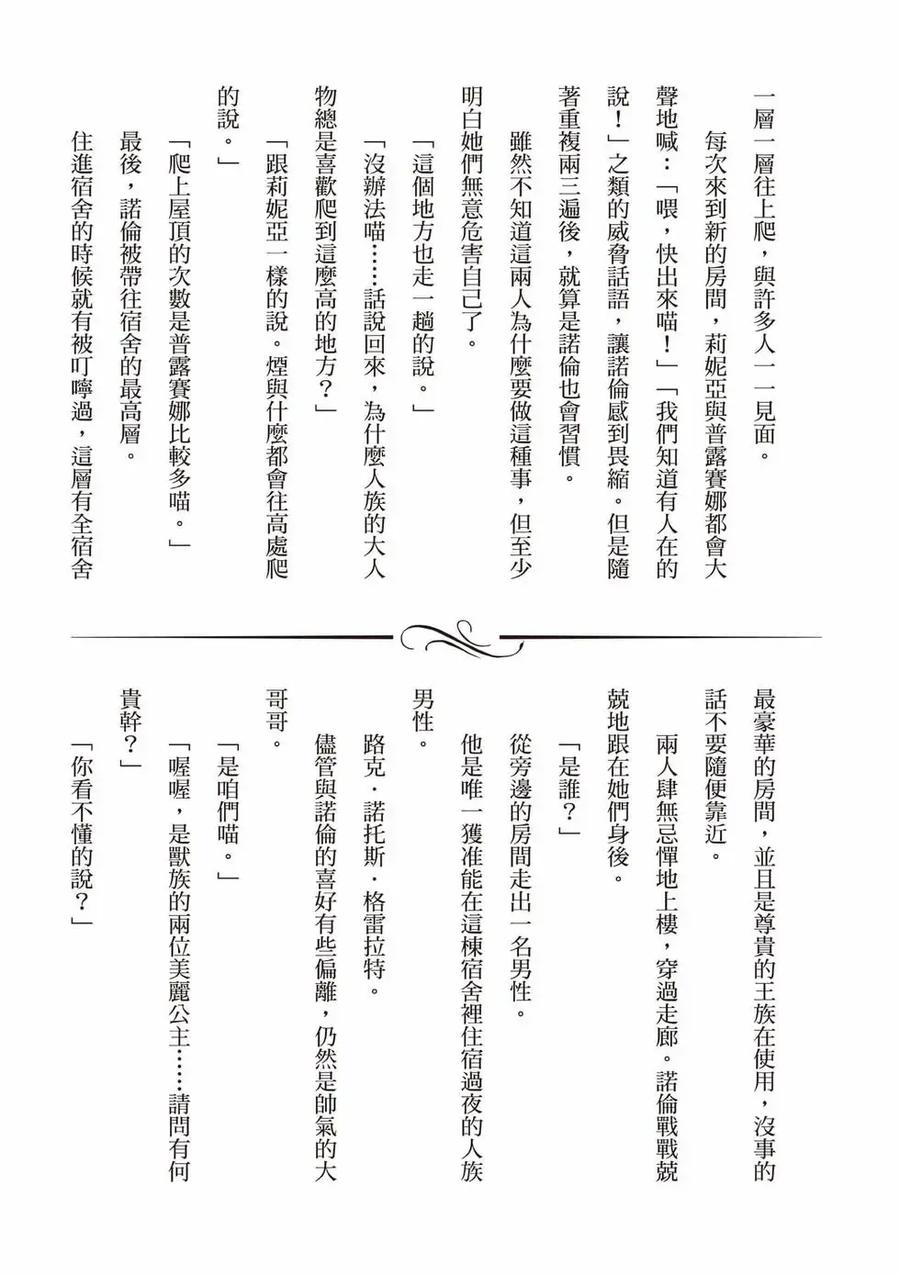 一層一層往上爬，與許多人一一見面。
每次來到新的房間，莉妮亞與普露賽娜都會大
聲地喊：「喂，快出來喵！」「我們知道有人在的
說！」之類的威脅話語，讓諾倫感到畏縮。但是隨
著重複兩三遍後，就算是諾倫也會習慣。
雖然不知道這兩人為什麼要做這種事，但至少
明白她們無意危害自己了。
「這個地方也走一趟的說。」
「沒辦法喵……話說回來，為什麼人族的大人
物總是喜歡爬到這麼高的地方？」
「跟莉妮亞一樣的說。煙與什麼都會往高處爬
的說。」
「爬上屋頂的次數是普露賽娜比較多喵。」
最後，諾倫被帶往宿舍的最高層。
住進宿舍的時候就有被叮嚀過，這層有全宿舍
最豪華的房間，並且是尊貴的王族在使用，沒事的
話不要隨便靠近。
兩人肆無忌憚地上樓，穿過走廊。諾倫戰戰兢
兢地跟在她們身後。
「是誰？」
從旁邊的房間走出一名男性。
他是唯一獲准能在這棟宿舍裡住宿過夜的人族
男性。
路克．諾托斯．格雷拉特。
儘管與諾倫的喜好有些偏離，仍然是帥氣的大
哥哥。
「是咱們喵。」
「喔喔，是獸族的兩位美麗公主……請問有何
貴幹？」
「你看不懂的說？」